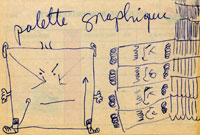 palette graphique